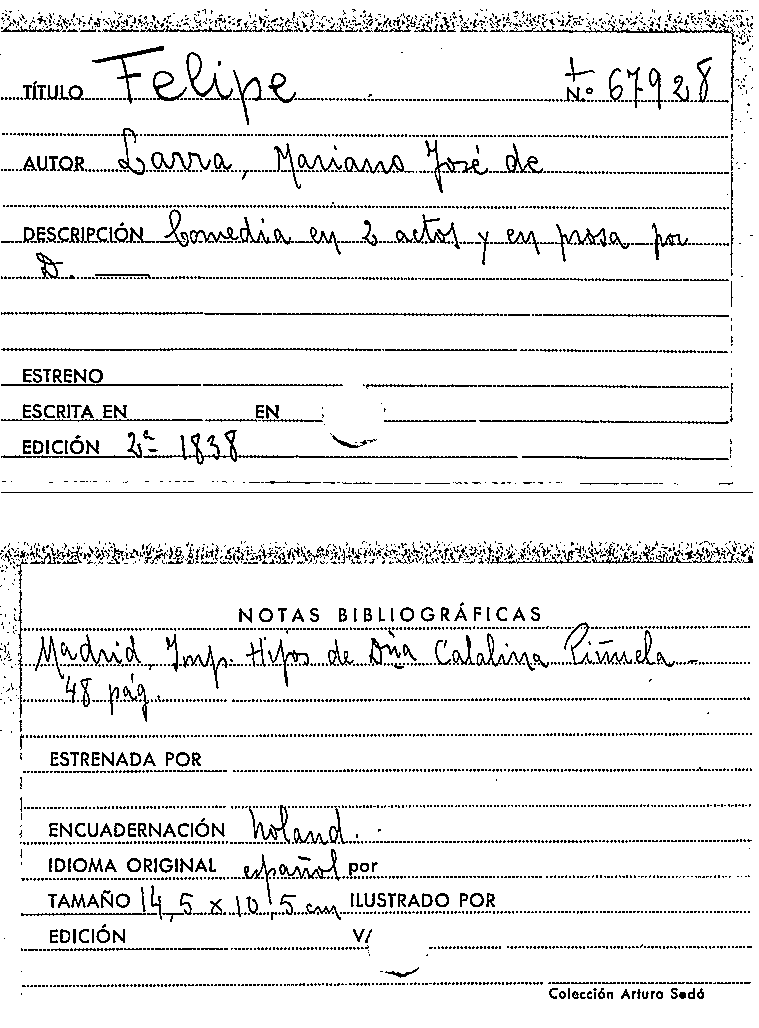 TÍTULO Felipe N.º 67928
AUTOR Larra, Mariano José de
DESCRIPCIÓN Comedia en 2 actos y en prosa por
D. ——
ESTRENO
ESCRITA EN EN
EDICIÓN 2ª 1838
NOTAS BIBLIOGRÁFICAS
Madrid, Imp. Hijos de Dña Catalina Piñuela –
48 pág.
ESTRENADA POR
ENCUADERNACIÓN holand.
IDIOMA ORIGINAL español por
TAMAÑO 14,5 x 10,5 cm ILUSTRADO POR
EDICIÓN V/
Colección Arturo Sedó